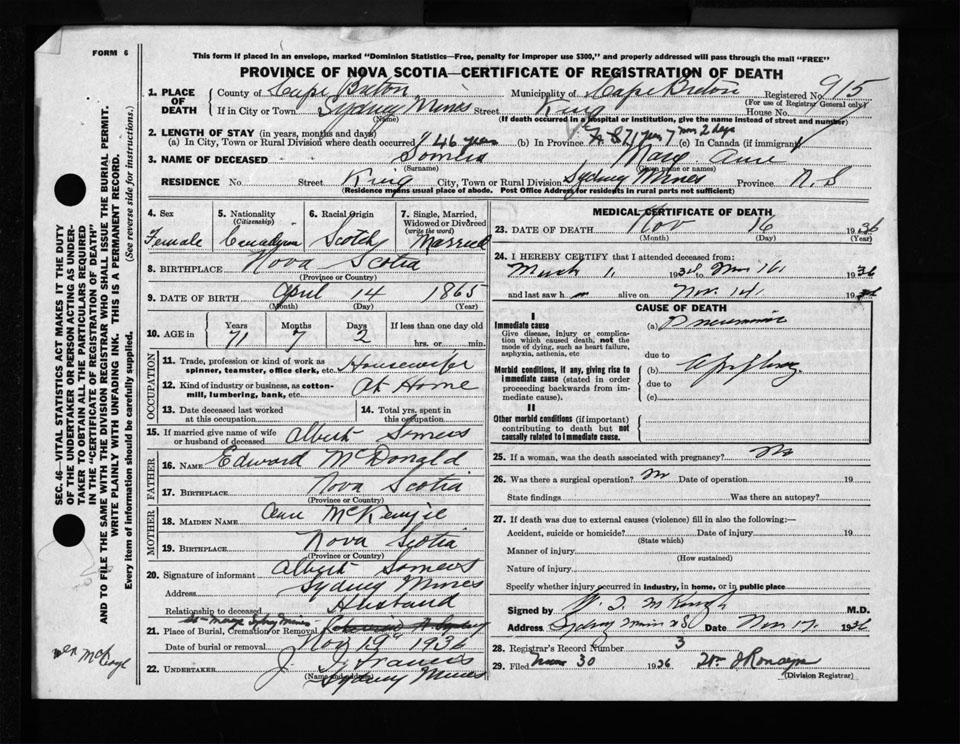 FORM 6
This form if placed in an envelope, marked "Dominion Statistics—Free, penalty for improper use $300," and properly addressed will pass through the mail "FREE"
PROVINCE OF NOVA SCOTIA—CERTIFICATE OF REGISTRATION OF DEATH
1. PLACE OF DEATH County of Cape Breton Municipality of Cape Breton Registered No. 915
(For use of Registrar General only)
If in City or Town Sydney Mines Street King House No.
(Name) (If death occurred in a hospital or institution, give the name instead of street and number)
2. LENGTH OF STAY (in years, months and days)
(a) In City, Town or Rural Division where death occurred 46 years (b) In Province 71 yrs 7 mos 2 days (c) In Canada (if immigrant)
3. NAME OF DECEASED Somers Mary Anne
(Surname) (Given name or names)
RESIDENCE No. Street King City, Town or Rural Division Sydney Mines Province N.S
(Residence means usual place of abode. Post Office Address for residents in rural parts not sufficient)
4. Sex Female
5. Nationality (Citizenship) Canadian
6. Racial Origin Scotch
7. Single, Married, Widowed or Divorced (write the word) Married
8. BIRTHPLACE Nova Scotia
(Province or Country)
9. DATE OF BIRTH April 14 1865
(Month) (Day) (Year)
10. AGE in Years 71 Months 7 Days 2 If less than one day old hrs. or min.
OCCUPATION
11. Trade, profession or kind of work as spinner, teamster, office clerk, etc. Housewife
12. Kind of industry or business, as cotton-mill, lumbering, bank, etc. At Home
13. Date deceased last worked at this occupation
14. Total yrs. spent in this occupation
15. If married give name of wife or husband of deceased Albert Somers
FATHER
16. NAME Edward McDonald
17. BIRTHPLACE Nova Scotia
(Province or Country)
MOTHER
18. MAIDEN NAME Ann McKenzie
19. BIRTHPLACE Nova Scotia
(Province or Country)
20. Signature of informant Albert Somers
Address Sydney Mines
Relationship to deceased Husband
21. Place of Burial, Cremation or Removal Sydney Mines
Date of burial or removal Nov 19 1936
22. UNDERTAKER J. J. Francis
(Name and address) Sydney Mines
MEDICAL CERTIFICATE OF DEATH
23. DATE OF DEATH Nov 16 1936
(Month) (Day)
24. I HEREBY CERTIFY that I attended deceased from:
March 1, 193 to Nov 16, 1936
and last saw h alive on Nov. 14, 19
CAUSE OF DEATH
I
Immediate cause
Give disease, injury or complication which caused death, not the mode of dying, such as heart failure, asphyxia, asthenia, etc
(a) Pneumonia
due to
Morbid conditions, if any, giving rise to immediate cause (stated in order proceeding backwards from immediate cause).
(b)
due to
(c)
II
Other morbid conditions (if important) contributing to death but not causally related to immediate cause.
25. If a woman, was the death associated with pregnancy? No
26. Was there a surgical operation? Date of operation 19
State findings Was there an autopsy?
27. If death was due to external causes (violence) fill in also the following:—
Accident, suicide or homicide? Date of injury 19
(State which)
Manner of injury
(How sustained)
Nature of injury
Specify whether injury occurred in industry, in home, or in public place
Signed by M.D.
Address Sydney Mines N.S Date Nov 17. 1936
28. Registrar's Record Number 3
29. Filed 30 1936
(Division Registrar)
SEC. 46—VITAL STATISTICS ACT MAKES IT THE DUTY OF THE UNDERTAKER OR PERSON ACTING AS UNDERTAKER TO OBTAIN ALL THE PARTICULARS REQUIRED IN THE "CERTIFICATE OF REGISTRATION OF DEATH" AND TO FILE THE SAME WITH THE DIVISION REGISTRAR WHO SHALL ISSUE THE BURIAL PERMIT.
WRITE PLAINLY WITH UNFADING INK. THIS IS A PERMANENT RECORD.
Every item of information should be carefully supplied. (See reverse side for instructions.)